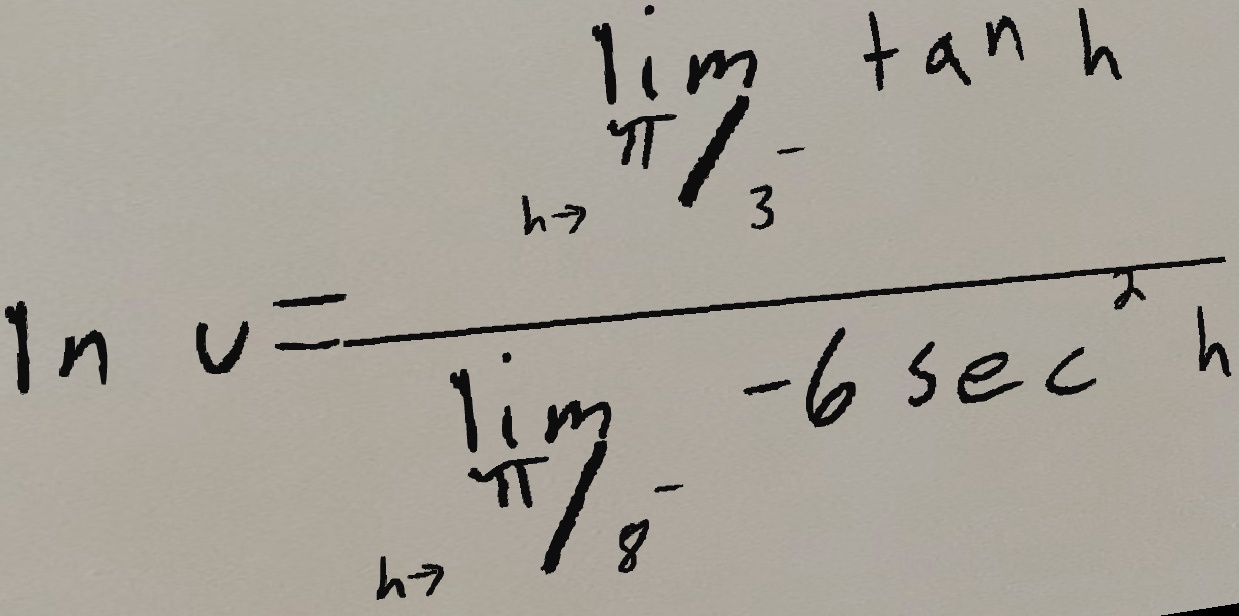 ln v = \frac{\lim_{h \to \pi/3^-} \tan h}{\lim_{h \to \pi/8^-} -6 \sec^2 h}